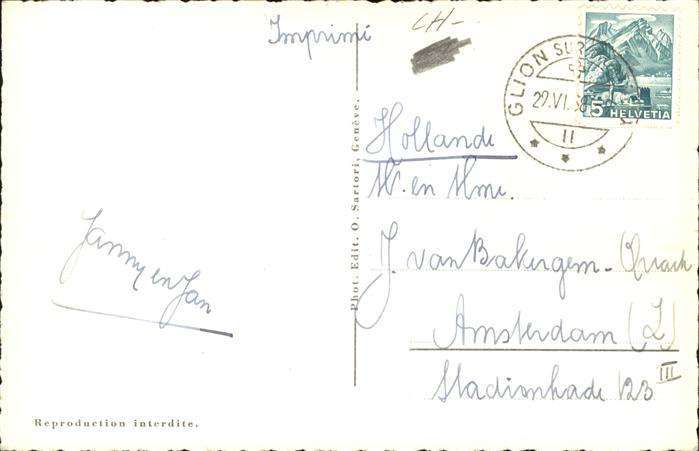 Imprimé
CH-
GLION SUR
29.VI.38
II
5 HELVETIA
Hollande
W. en Mme.
J. van Bakergem - Quack
Amsterdam (Z)
Stadionkade 123 III
Janny en Jan
Phot. Edit. O. Sartori, Genève.
Reproduction interdite.